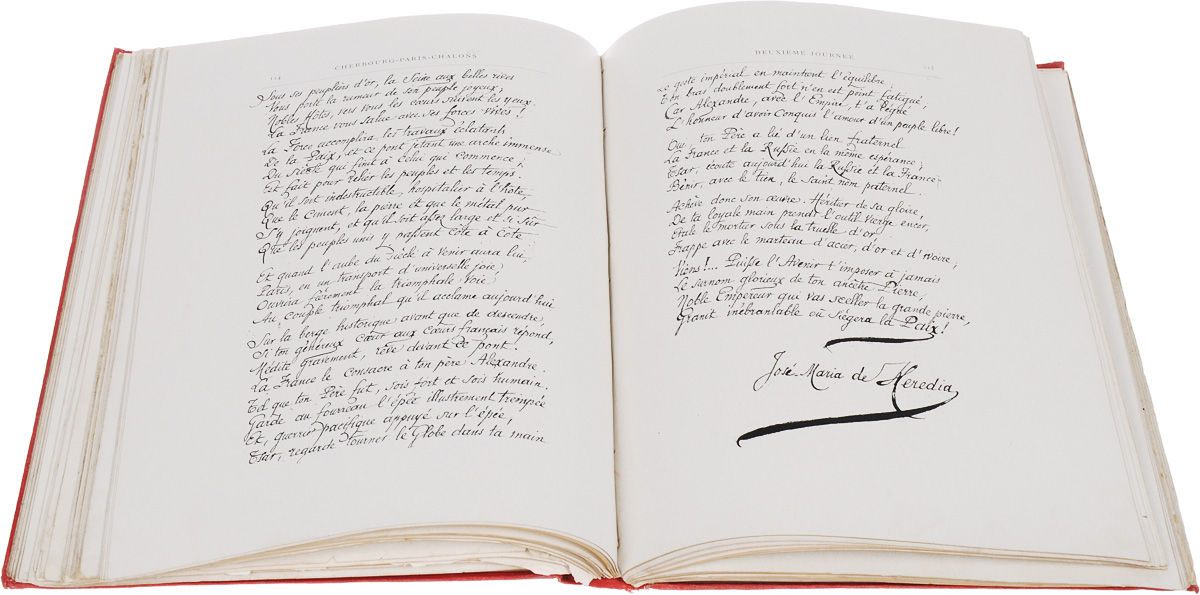 114
CHERBOURG-PARIS-CHALONS
Sous ses peupliers d'or, la Seine aux belles rives
Vous porte la rumeur de son peuple joyeux,
Nobles Hôtes, vers vous les cœurs suivent les yeux,
La France vous salue avec ses forces vives!
La Force accomplira les travaux éclatants
De la Paix, et ce pont jetant une arche immense
Du siècle qui finit à celui qui commence,
Est fait pour relier les peuples et les temps.
Qu'il soit indestructible, hospitalier à l'hôte,
Que le Ciment, la pierre et que le métal pur
S'y joignent, et qu'il soit assez large et si sûr
Que les peuples unis y passent côte à côte
Et quand l'aube du Siècle à venir aura lui,
Paris, en un transport d'universelle joie,
Ouvrira fièrement la triomphale Voie
Au couple triomphal qu'il acclame aujourd'hui
Sur la berge historique avant que de descendre
Si ton généreux cœur aux Cœurs français répond,
Médite gravement, rêve devant ce pont.
La France le Consacre à ton père Alexandre.
Tel que ton Père fut, sois fort et sois humain.
Garde au fourreau l'épée illustrement trempée
Et, guerrier pacifique appuyé sur l'épée,
Tsar, regarde tourner le Globe dans ta main
DEUXIÈME JOURNÉE
Le geste impérial en maintient l'équilibre,
Ton bras doublement fort n'en est point fatigué,
Car Alexandre, avec l'Empire, t'a légué
L'honneur d'avoir Conquis l'amour d'un peuple libre!
Oui ton Père a lié d'un lien fraternel
La France et la Russie en la même espérance;
Tsar, écoute aujourd'hui la Russie et la France
Bénir, avec le tien, le Saint nom paternel.
Achève donc son œuvre. Héritier de sa gloire,
De ta loyale main prends l'outil vierge encor,
Étale le mortier sous la truelle d'or
Frappe avec le marteau d'acier, d'or et d'ivoire,
Viens!... Puisse l'Avenir t'imposer à jamais
Le surnom glorieux de ton ancêtre Pierre,
Noble Empereur qui vas sceller la grande pierre,
Granit inébranlable où siégera la Paix!
José-Maria de Heredia